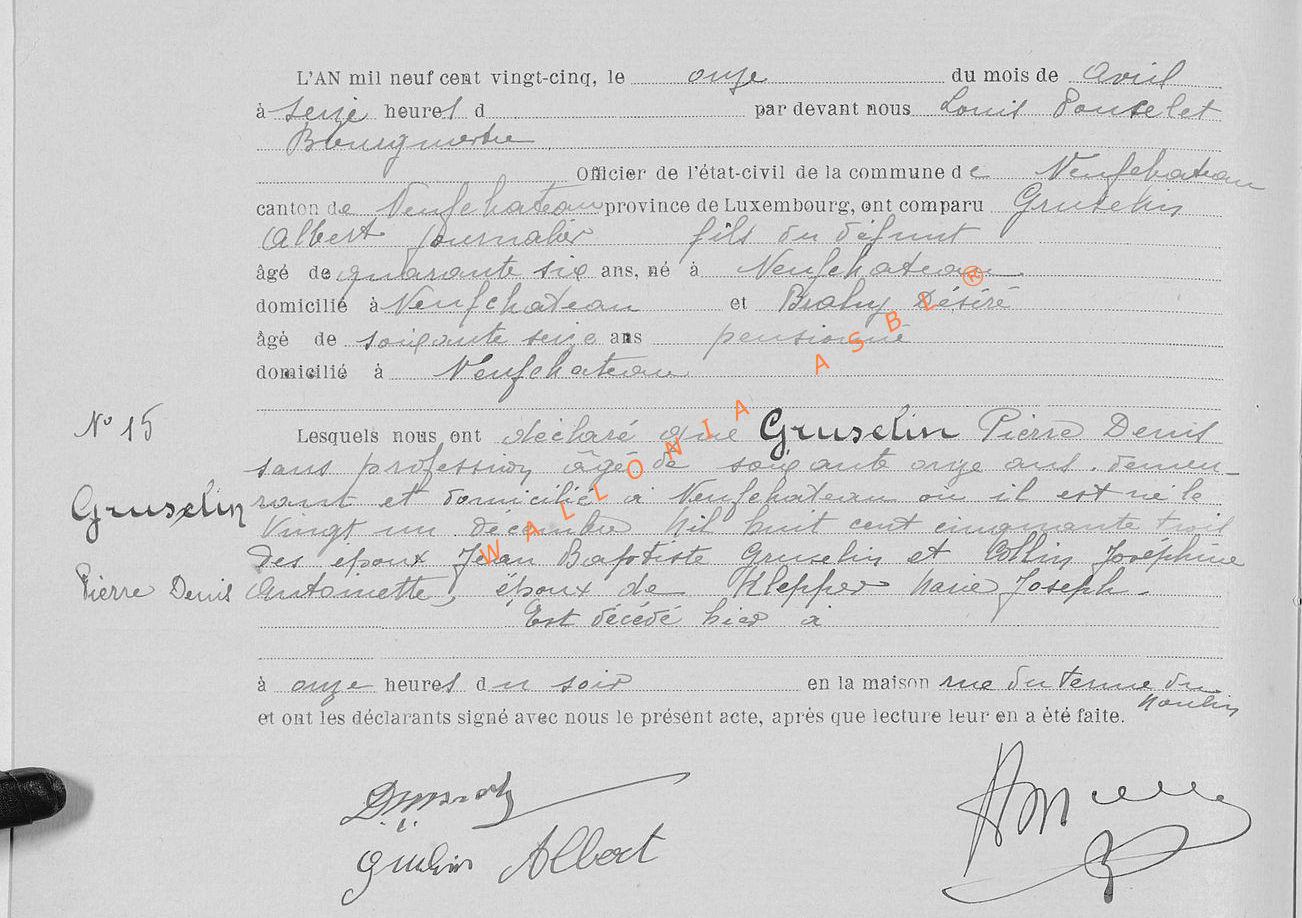 L'AN mil neuf cent vingt-cinq, le onze du mois de Avril
à seize heures d par devant nous Louis Poncelet
Bourgmestre
Officier de l'état-civil de la commune de Neufchateau
canton de Neufchateau province de Luxembourg, ont comparu Gruselin
Albert journalier fils du défunt
âgé de quarante six ans, né à Neufchateau
domicilié à Neufchateau et Brahy Désiré
âgé de soixante seize ans pensionné
domicilié à Neufchateau
N° 15
Lesquels nous ont déclaré que Gruselin Pierre Denis
sans profession âgé de soixante onze ans. demeu-
Gruselin
rant et domicilié à Neufchateau où il est né le
vingt un décembre Mil huit cent cinquante trois
des époux Jean Baptiste Gruselin et Collin Joséphine
Pierre Denis
Antoinette, époux de Klepper Marie Joseph.
Est décédé hier à
à onze heures du soir en la maison rue du terme du
Moulin
et ont les déclarants signé avec nous le présent acte, après que lecture leur en a été faite.
Gruselin Albert
WALLONIA ASBL ®